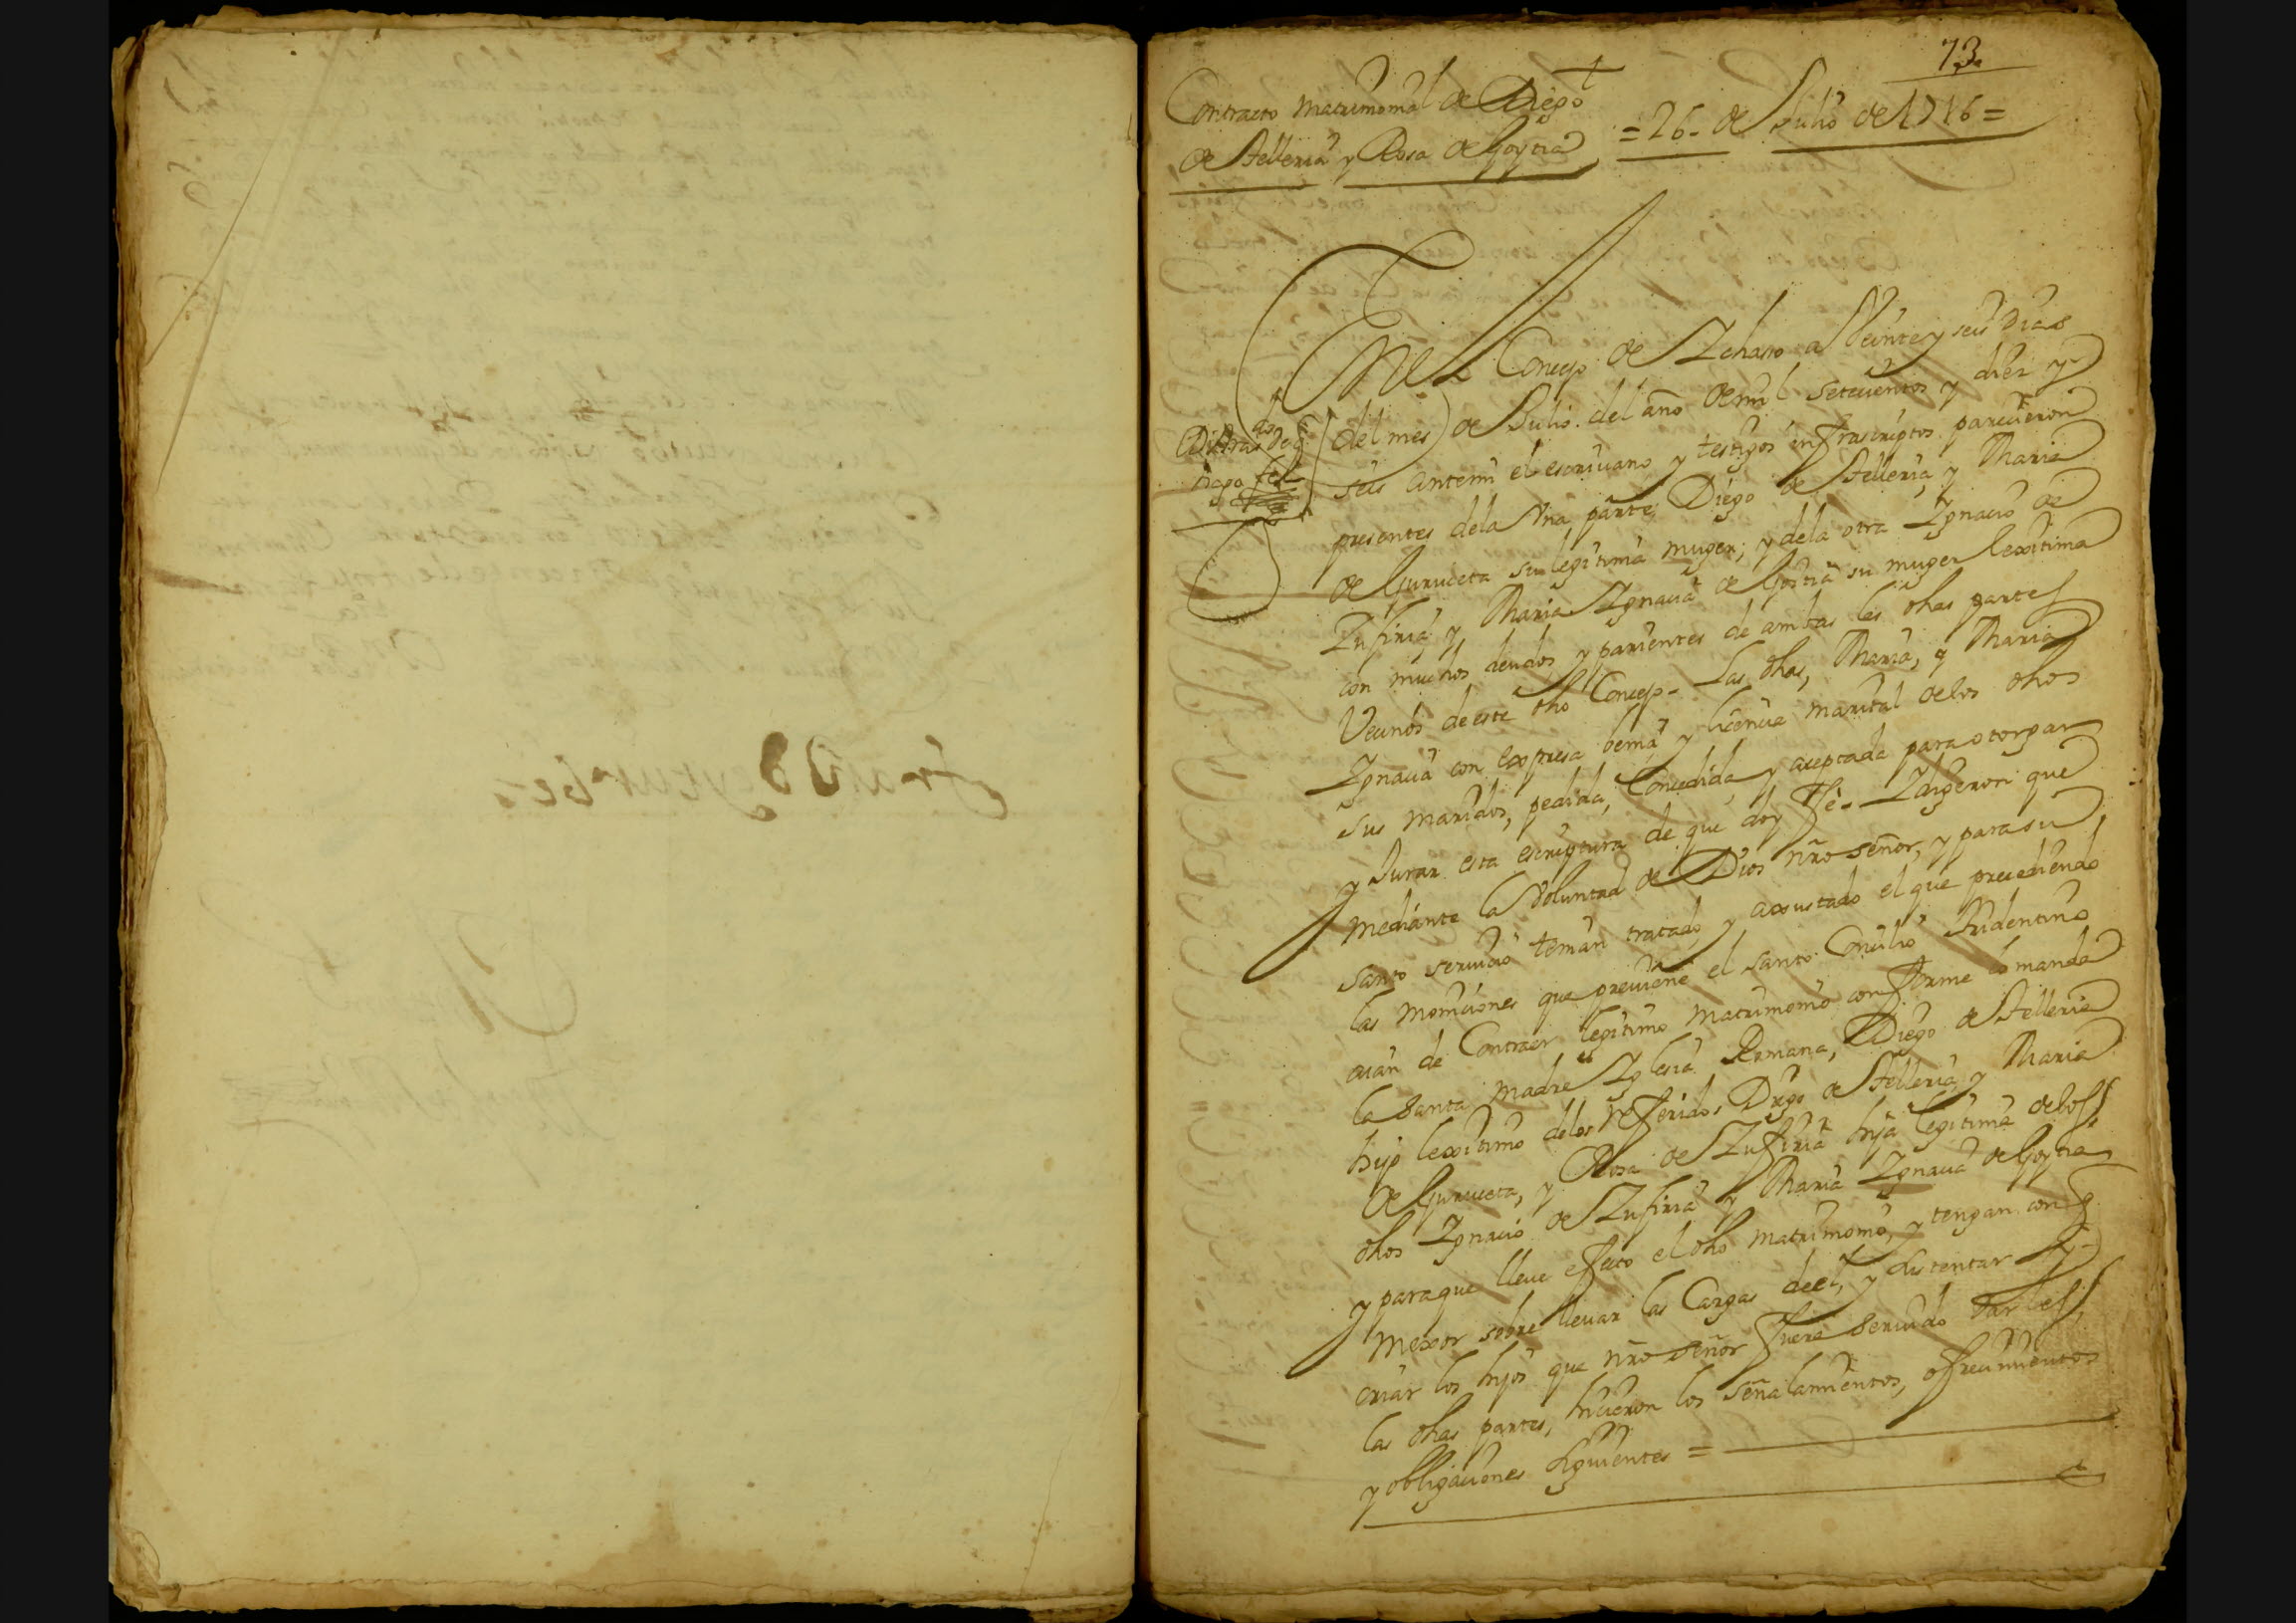 73
Contracto matrimonial de Diego
de Telleria y Rosa de Goytia
= 26 - de Julio de 1716 =
En el Concejo de Ychaso a Veinte y seis dias
del mes de Julio del año de mil setecientos y diez y
seis antemi el escriuano y testigos infrascriptos parecieron
presentes dela Vna parte Diego de Telleria, y Maria
de Guruceta su legitima muger; y dela otra Ygnacio de
Zufiria, y Maria Ygnacia de Goitia su muger lexitima
con muchos deudos y parientes de ambas las dhas partes
Vecinos de este dho Concejo - Las dhas, Maria, y Maria
Ygnacia con expresa venia y licencia marital delos dhos
sus maridos, pedida, Concedida, y aceptada para otorgar
y Jurar esta escriptura de que doy fe - Ydixeron que
mediante la Voluntad de Dios nro señor, y para su
santo seruicio tenian tratado y axustado el que precediendo
las moniciones que preuiene el santo Concilio Tridentino
aian de Contraer legitimo matrimonio conforme lo manda
la Santa madre Yglesia Romana, Diego de Telleria
hijo lexitimo delos referidos Diego de Telleria, y Maria
de Guruceta, y Rosa de Zufiria hija legitima delos
dhos Ygnacio de Zufiria y Maria Ygnacia de Goytia
y paraque lleue efecto el dho matrimonio, y tengan con q
mexor sobrelleuar las Cargas deel, y sustentar y
criar los hijos que nro señor fuere seruido darles,
las dhas partes, hicieron los señalamientos, ofrecimientos
y obligaciones siguientes =